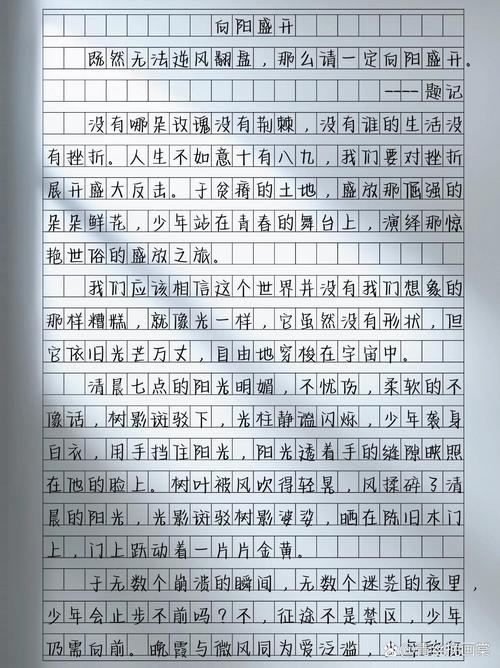 向阳盛开
既然无法逆风翻盘，那么请一定向阳盛开。
----题记
没有哪朵玫瑰没有荆棘，没有谁的生活没
有挫折。人生不如意十有八九，我们要对挫折
展开盛大反击。于贫瘠的土地，盛放那倔强的
朵朵鲜花，少年站在青春的舞台上，演绎那惊
艳世俗的盛放之旅。
我们应该相信这个世界并没有我们想象的
那样糟糕，就像光一样，它虽然没有形状，但
它依旧光芒万丈，自由地穿梭在宇宙中。
清晨七点的阳光明媚，不忧伤，柔软的不
像话，树影斑驳下，光柱静谧闪烁，少年袭身
白衣，用手挡住阳光，阳光透着手的缝隙映照
在他的脸上。树叶被风吹得轻晃，风揉碎了清
晨的阳光，光影斑驳树影婆娑，晒在陈旧木门
上，门上跃动着一片片金黄。
于无数个崩溃的瞬间，无数个迷茫的夜里，
少年会止步不前吗？不，征途不是禁区，少年
仍需向前。晚霞与微风同为爱泛滥，少年